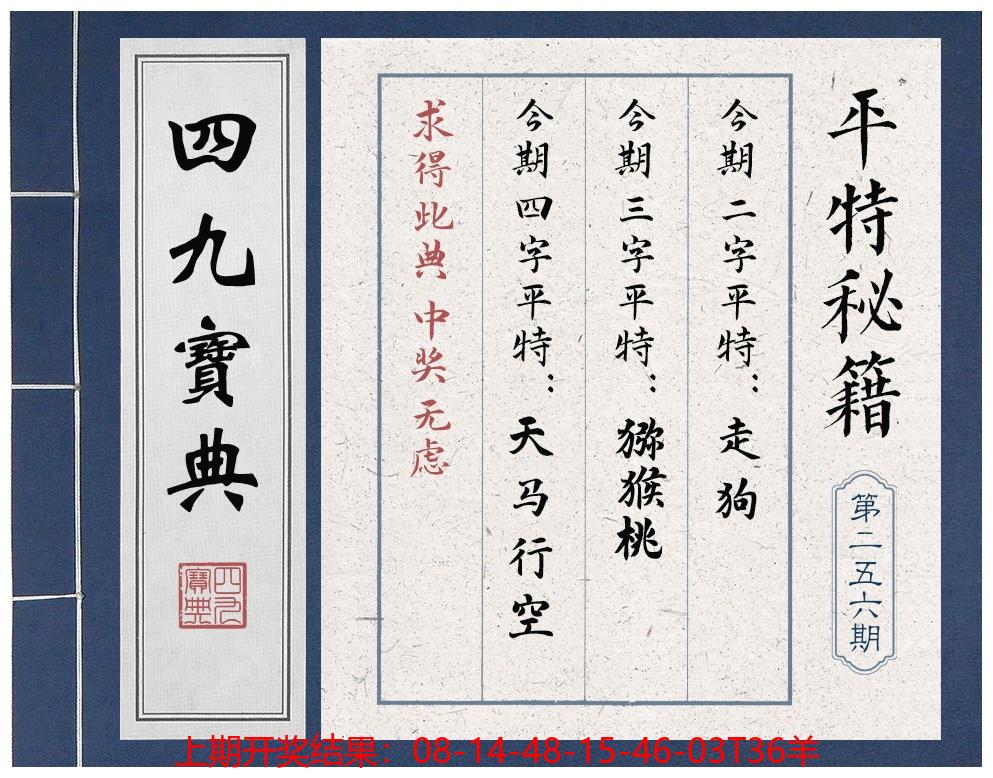 四九寶典
四九寶典
平特秘籍
第二五六期
今期二字平特：走狗
今期三字平特：猕猴桃
今期四字平特：天马行空
求得此典 中奖无虑
上期开奖结果：08-14-48-15-46-03T36羊